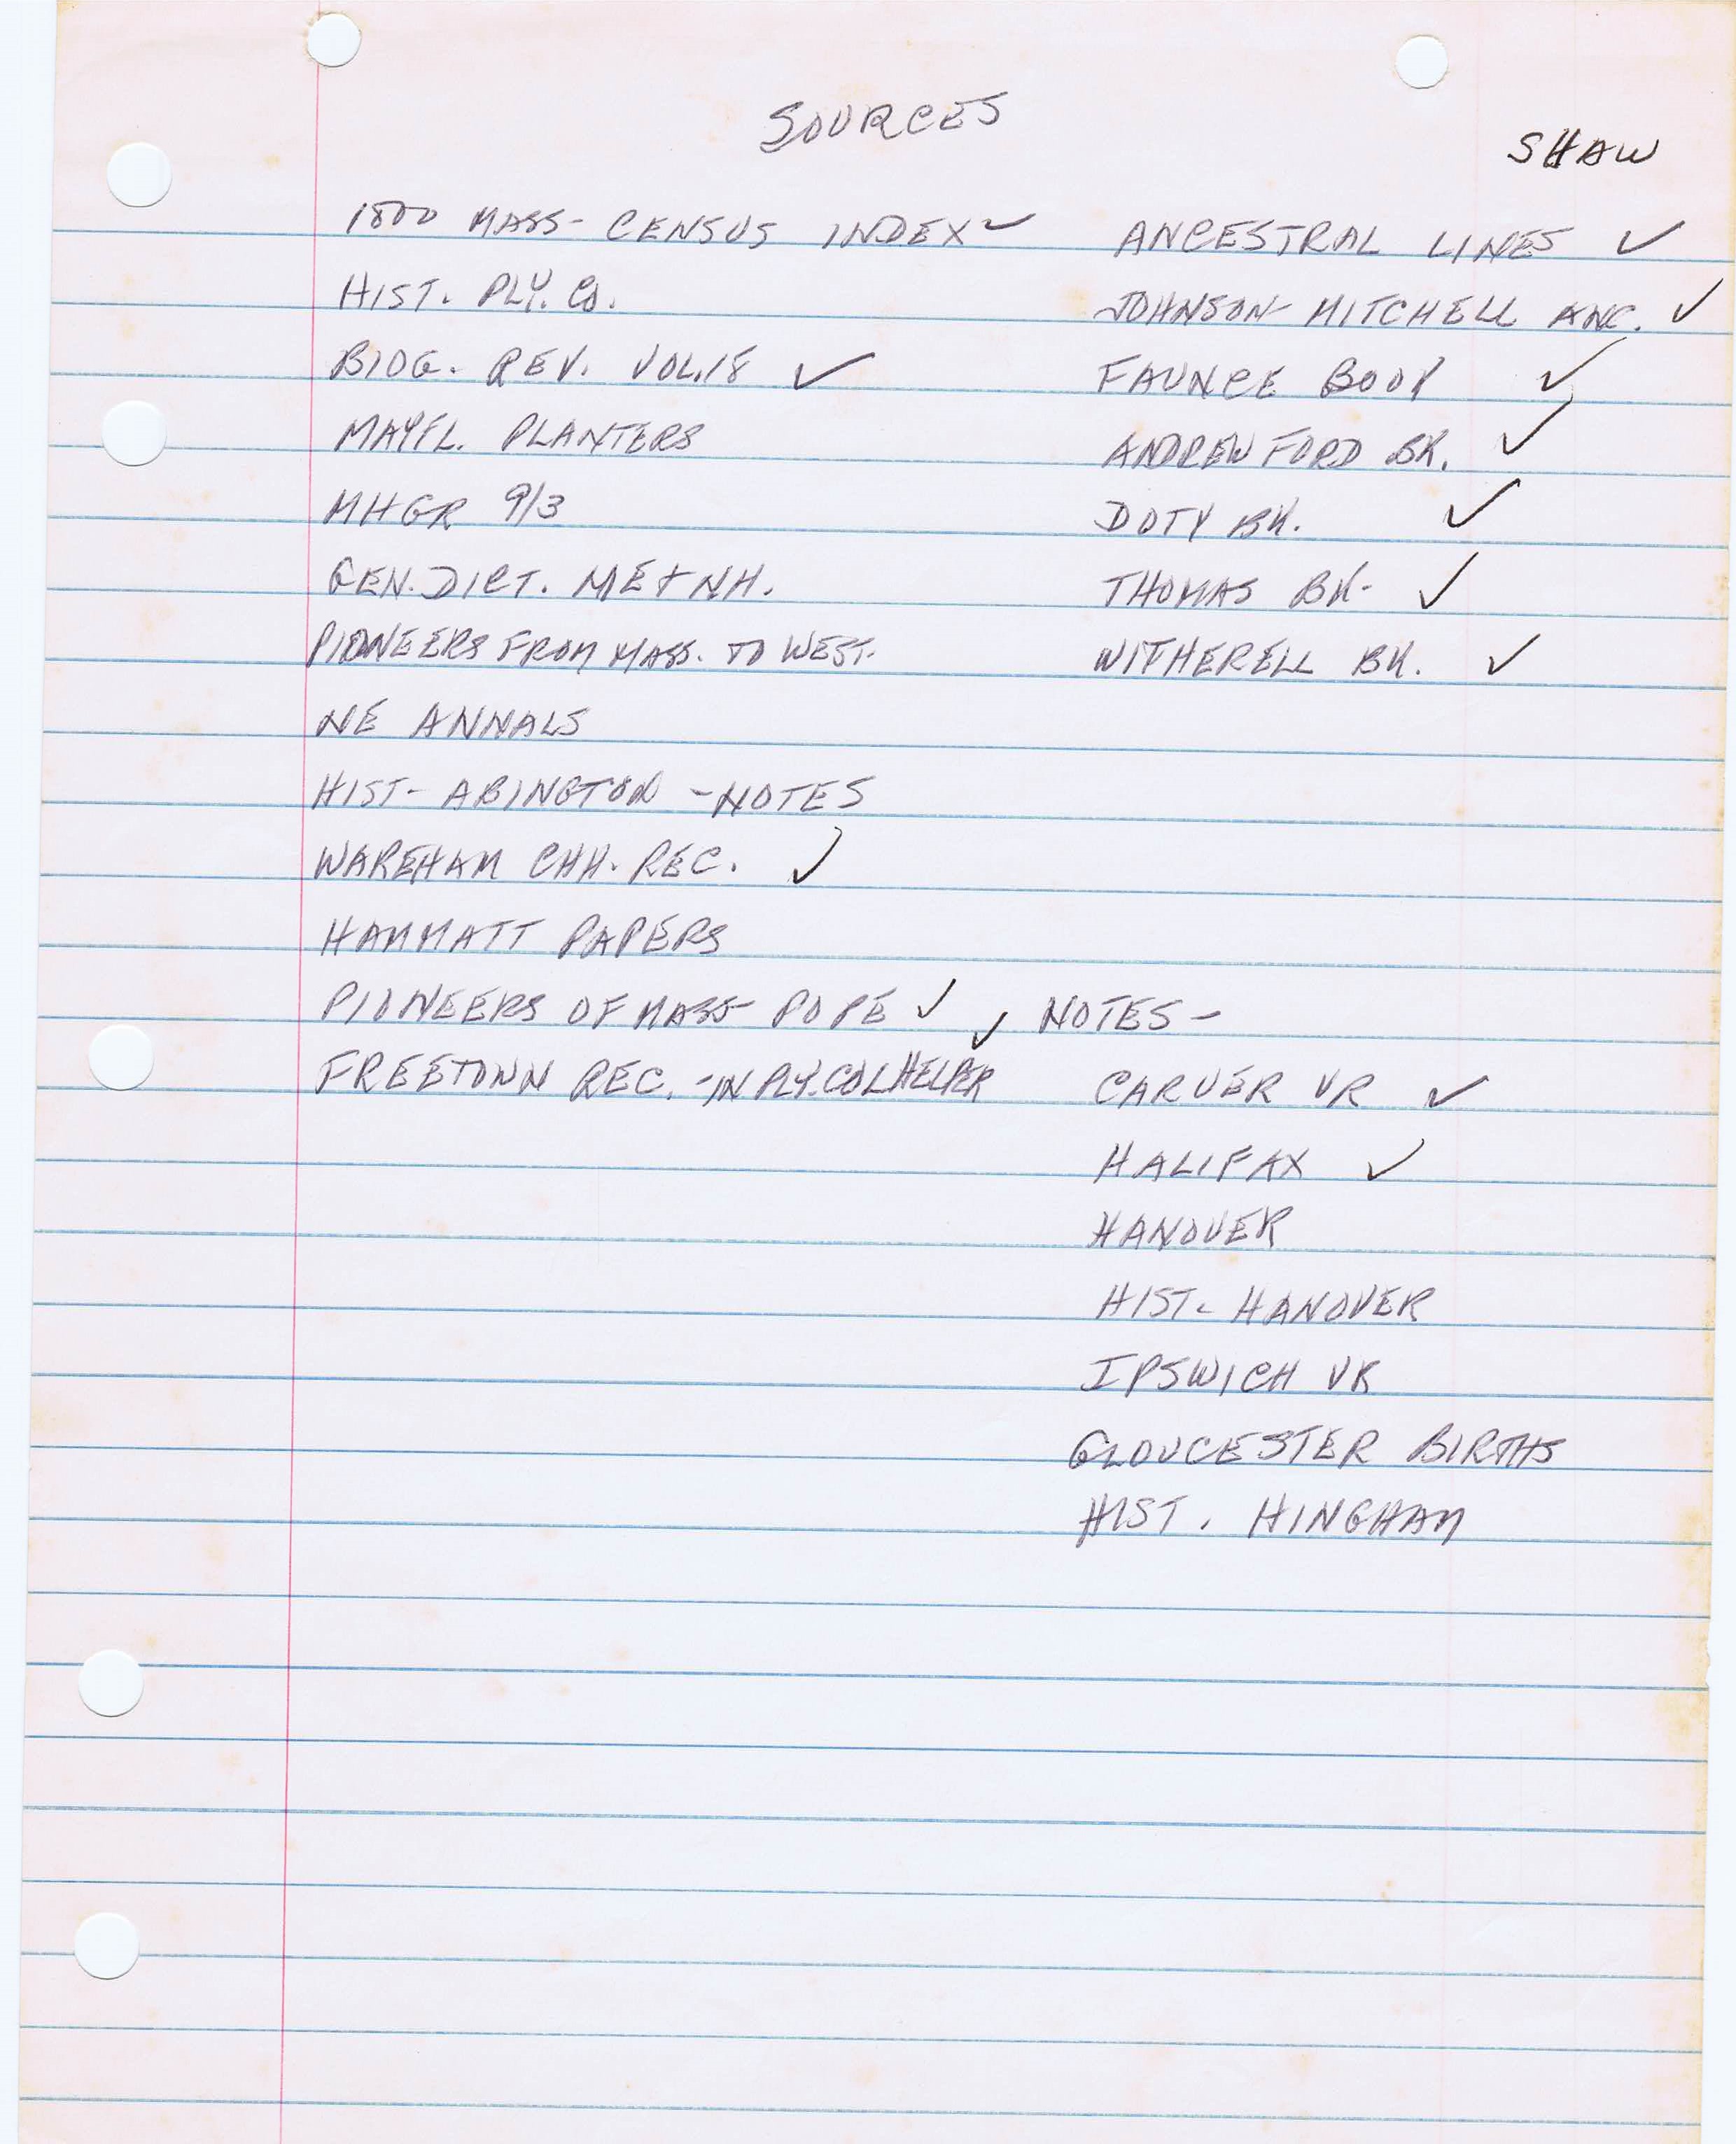 SOURCES
SHAW
1800 MASS- CENSUS INDEX ✓
HIST. PLY. CO.
BIOG. REV. VOL.18 ✓
MAYFL. PLANTERS
MHGR 9/3
GEN. DICT. ME + NH.
PIONEERS FROM MASS. TO WEST.
NE ANNALS
HIST- ABINGTON - NOTES
WAREHAM CHH. REC. ✓
HAMMATT PAPERS
PIONEERS OF MASS- POPE ✓
FREETOWN REC. - IN PLY. COL HELPER ✓
ANCESTRAL LINES ✓
JOHNSON- MITCHELL ANC. ✓
FAUNCE BOOK ✓
ANDREW FORD BK. ✓
DOTY BK. ✓
THOMAS BK- ✓
WITHERELL BK. ✓
NOTES -
CARVER VR ✓
HALIFAX ✓
HANOVER
HIST. HANOVER
IPSWICH VR
GLOUCESTER BIRTHS
HIST. HINGHAM